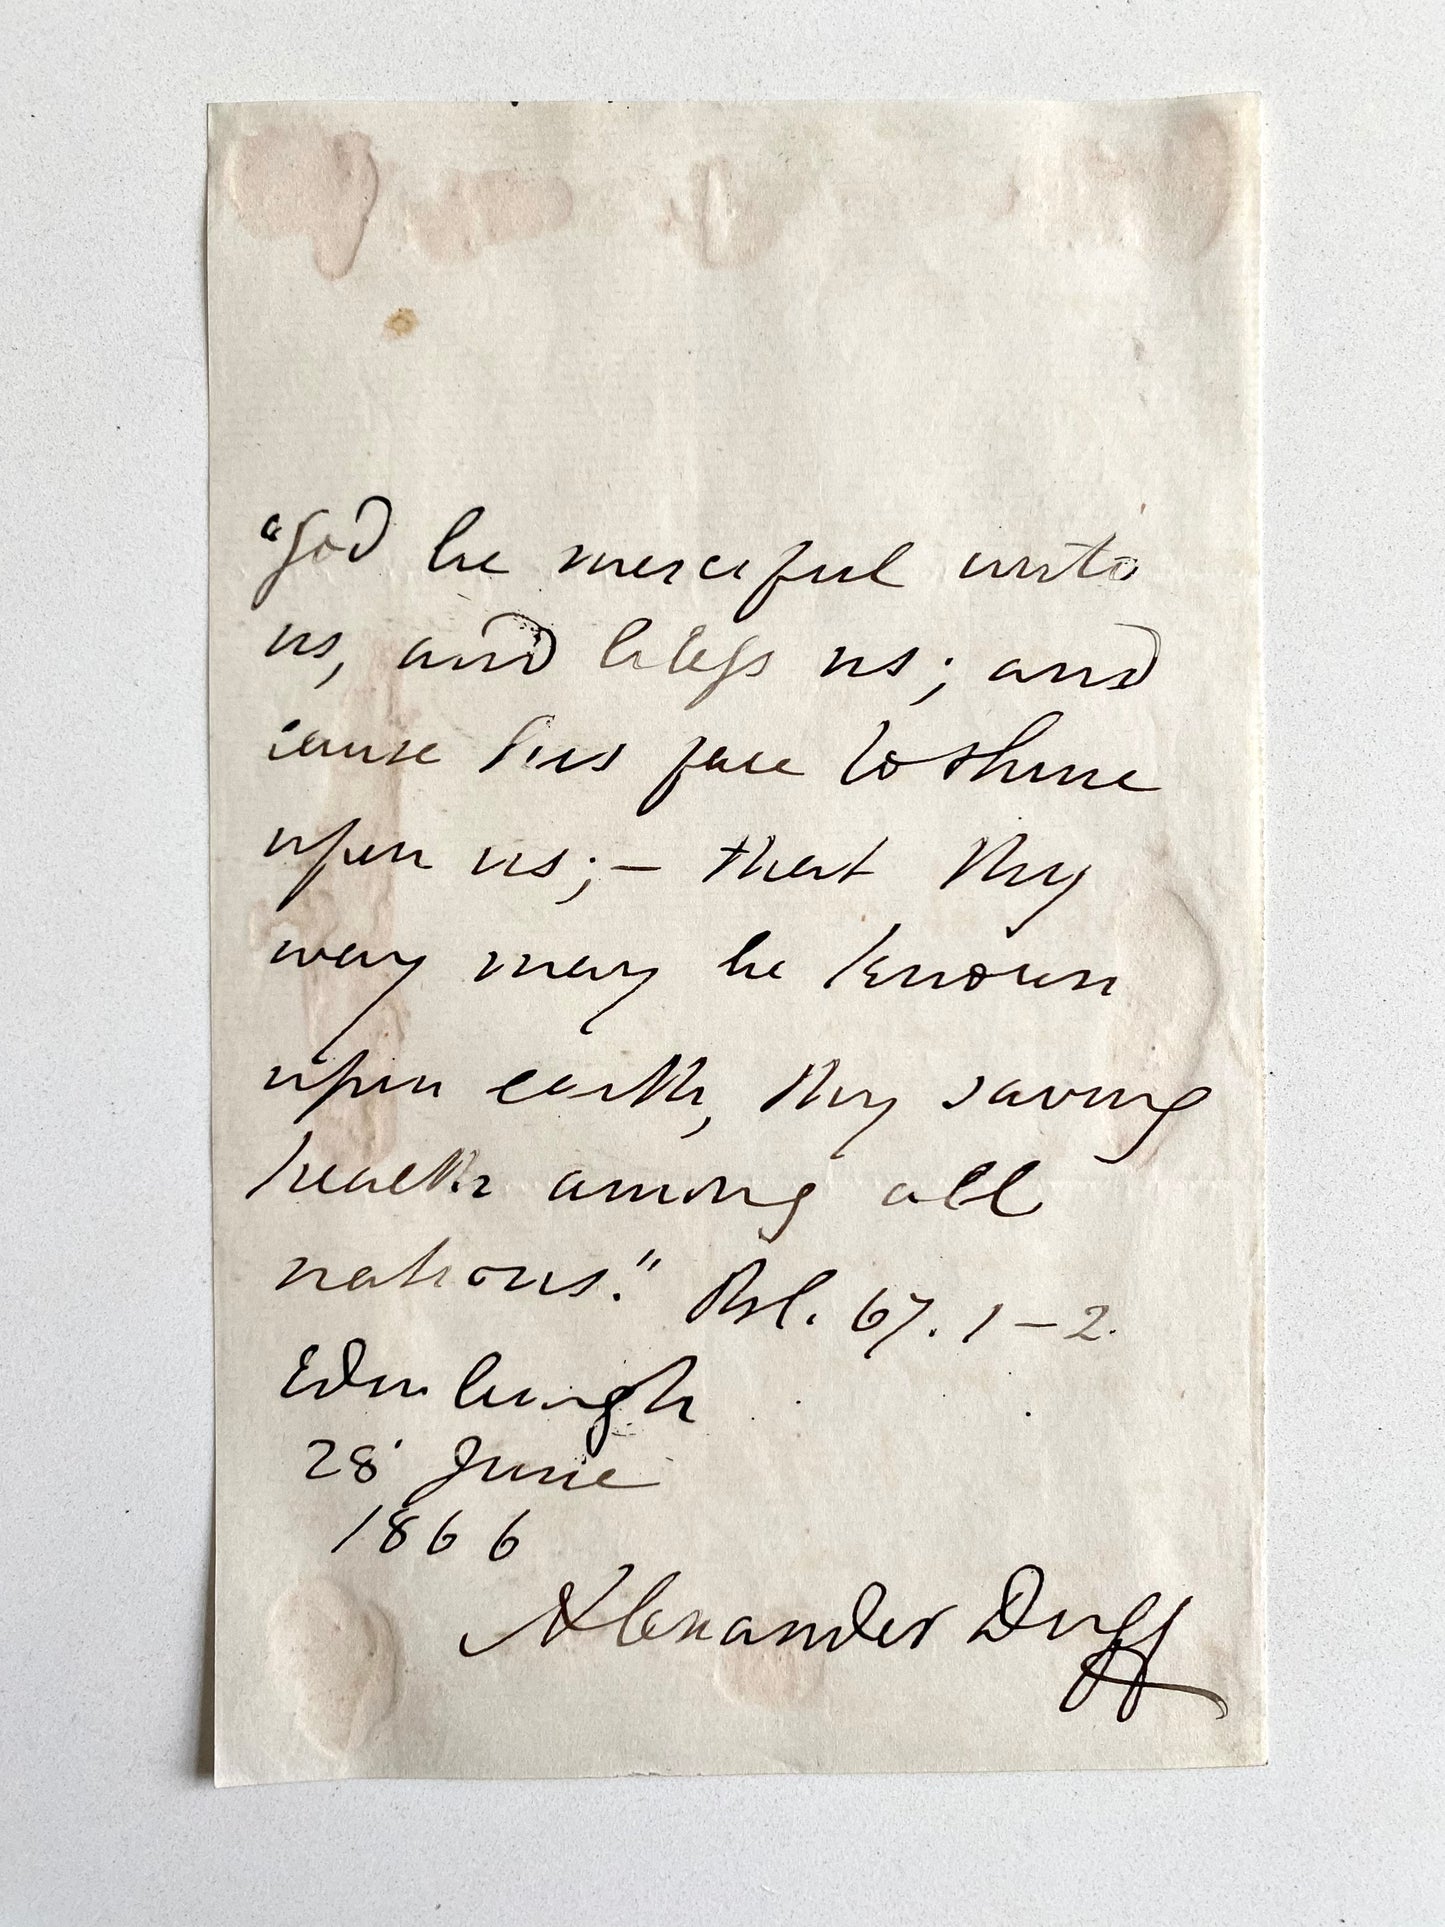 "God be merciful unto
us, and bless us; and
cause his face to shine
upon us;– that thy
way may be known
upon earth, thy saving
health among all
nations." Psl. 67. 1–2.
Edinburgh
28 June
1866
Alexander Duff